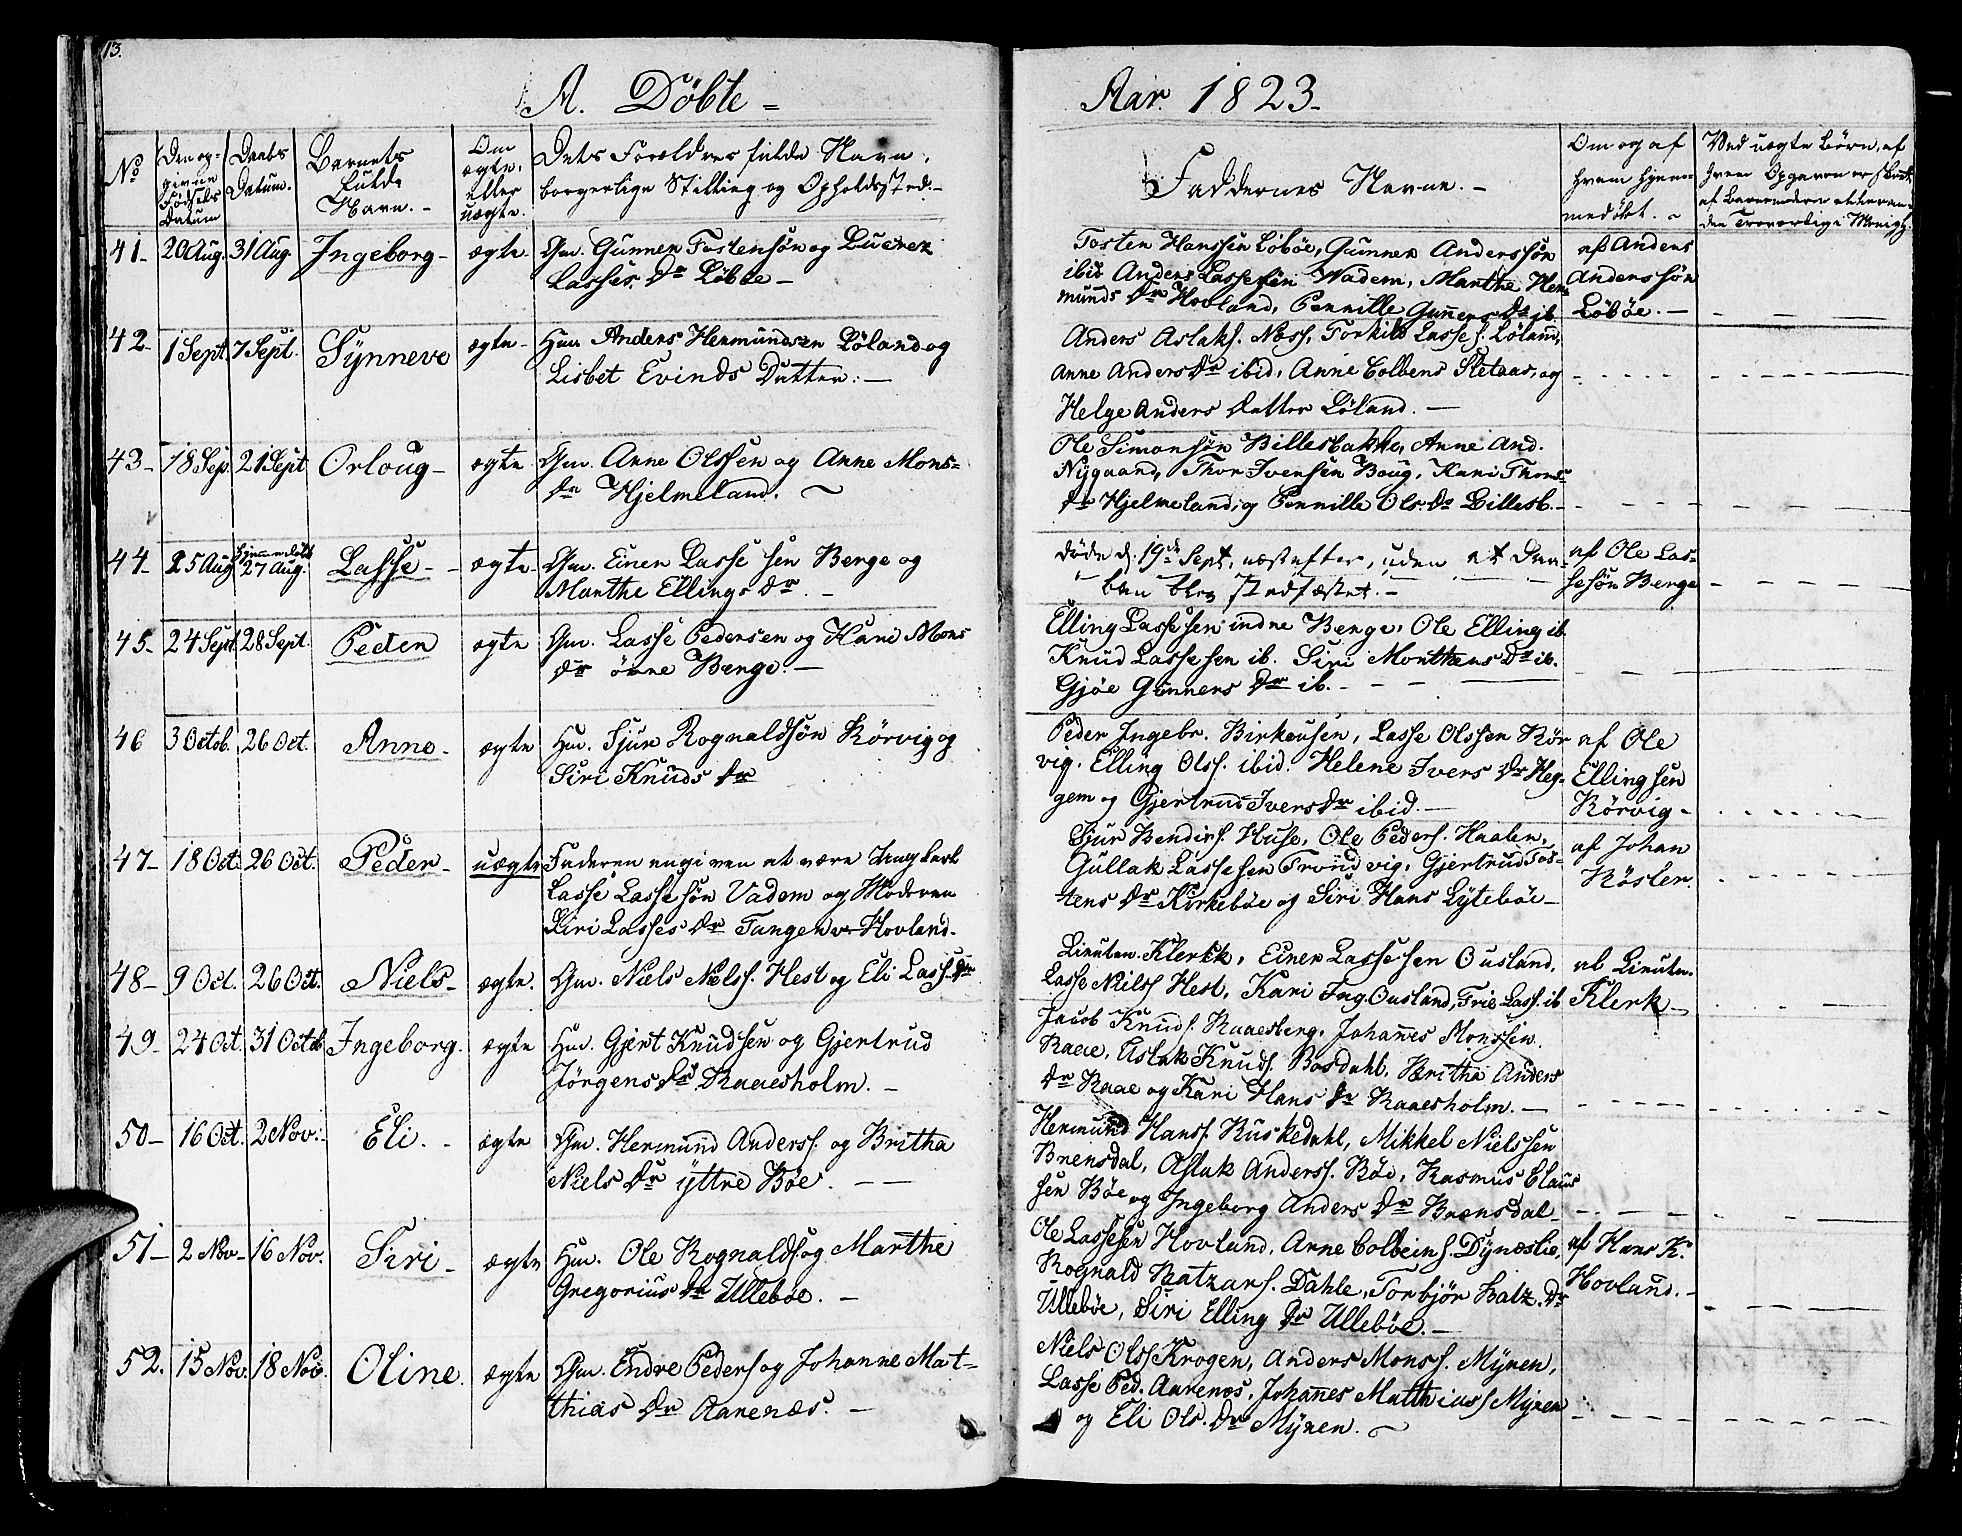 13.
A. Döbte
Aar 1823
No
Den opgivne Födsels Datum
Daabs Datum.
Barnets fulde Navn.
Om ægte, eller uægte.
Dets Forældres fulde Navn, borgerlige Stilling og Opholdssted.
Faddernes Navne.
Om og af hvem hjemmedöbt.
Ved uægte Börn, af hvem Opgaven er
41 20 Aug. 31 Aug. Ingeborg ægte Gm. Gunner Tostensön og
Lasses Dr Löböe
Tosten Hanssen Löböe, Gunner Anderssön
ibid Anders Lassesön Wadem, Marthe Her=
munds Dr Hovland, Pernille Gunners Dr ib.
af Anders
Anderssön
Löböe.
42 1 Sept 7 Sept. Synneve ægte Hm. Anders Hermundsen Löland og
Lisbet Evinds Datter.
Anders Aslaks. Næss, Torkild Lasses. Löland,
Anne Anders Dr ibid, Anne Colbens Sletaas, og
Helge Anders Datter Löland.
43 18 Sep. 21 Sept Orloug ægte Gm. Anne Olssen og Anne Mons=
Dr Hjelmeland.
Ole Simonsön Billesbakke, Anne And.
Nygaard, Thor Ivensen Boug, Kari Thors
Dr Hjelmeland, og Pernille Ols. Dr Billesb.
44 25 Aug hjemmedöbt 27 Aug. Lasse ægte Gm. Einer Lasse sen Berge og
Marthe Ellings Dr.
Döde d. 19de Sept. næst efter, uden at Daa-
ben blev stadfæstet.
af Ole Las-
sesön Berge
45 24 Sept 28 Sept. Peder ægte Gm. Lasse Pedersen og Kari Mons
Dr övre Berge.
Elling Lassesen indre Berge, Ole Elling ib.
Knud Lassesen ib. Siri Monthens Dr ib.
Gjöe Gunners Dr ib.
46 3 Octob. 26 Oct. Anne ægte Hm. Sjur Rognaldsön Rörvig og
Siri Knuds Dr
Peder Ingebr. Birkeusen, Lasse Olssen Rör
vig. Elling Olss. ibid. Helene Ivers Dr Heg-
gem og Gjertrud Ivers Dr ibid.
af Ole
Ellingsen
Rörvig
47 18 Oct. 26 Oct. Peder uægte Faderen angiven at være Ungkarl
Lasse Lassesön Vadem og Moderen
Siri Lasses Dr Tangen v. Hovland.
Sjur Bendixs. Huse, Ole Peders. Haalen,
Gullak Lassesen Troüdvig, Gjertrud Tos-
tens Dr Kirkeböe og Siri Hans Lyteböe
af Johan
Röster.
48 9 Oct. 26 Oct. Niels ægte. Gm. Niels Nielss. Hest og Eli Lass. Dr
Lieuten. Klerck, Einer Lassesen Ousland,
Lasse Nielss Hest, Kari Ing. Ousland, Trie Lass. ib
af Lieuten.
Klerk
49 24 Oct. 31 Octob Ingeborg. ægte Hm. Gjert Knudsen og Gjertrud
Jörgens Dr Raaesholm.
Jacob Knuds. Raaesberg, Johannes Monssen
Raae, Aslak Knuds. Bosdahl, Britha Anders
Dr Raae og Kari Hans Dr Raaesholm.
50 16 Oct. 2 Nov. Eli. ægte Gm. Hermund Anderss. og Britha
Niels Dr yttre Böe.
Hermund Hans. Ruskedahl, Mikkel Nielssen
Brensdal, Aslak Anderss. Böe, Rasmus Claus
sen Böe og Ingeborg Anders Dr Brensdal
51 2 Nov 16 Nov. Siri ægte Hm. Ole Rognalds og Marthe
Gregorius Dr Ulleböe.
Ole Lassesen Hovland, Arne Colbeins. Dynæslie,
Rognald Batzars. Dahle, Torbjör Batz. Dr
Ulleböe, Siri Elling Dr Ulleböe.
af Hans K.
Hovland.
52. 15 Nov. 18 Nov. Oline. ægte Gm. Endre Peders og Johanne Mat=
thias Dr Aarenæs.
Niels Olss Krogen, Anders Monss. Myren,
Lasse Ped. Aarenes, Johannes Matthiass Myren
og Eli Ols. Dr Myren.